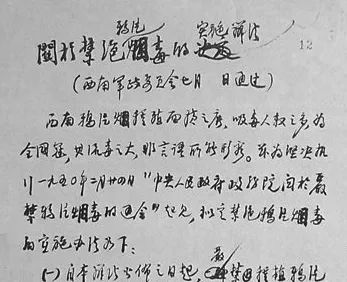 鸦片 实施办法
關於禁绝烟毒的决定
12
(西南軍政委員会七月 日通过)
西南鸦片烟種植面積之廣,吸毒人数之多为
全國冠,其流毒之大,非言語所能形容。兹为坚决执
行一九五〇年二月廿四日"中央人民政府政務院関於嚴
禁鸦片烟毒的通令"起見,拟定禁绝鸦片烟毒
的实施办法如下:
(一)自本辦法公佈之日起,嚴禁種植鸦片